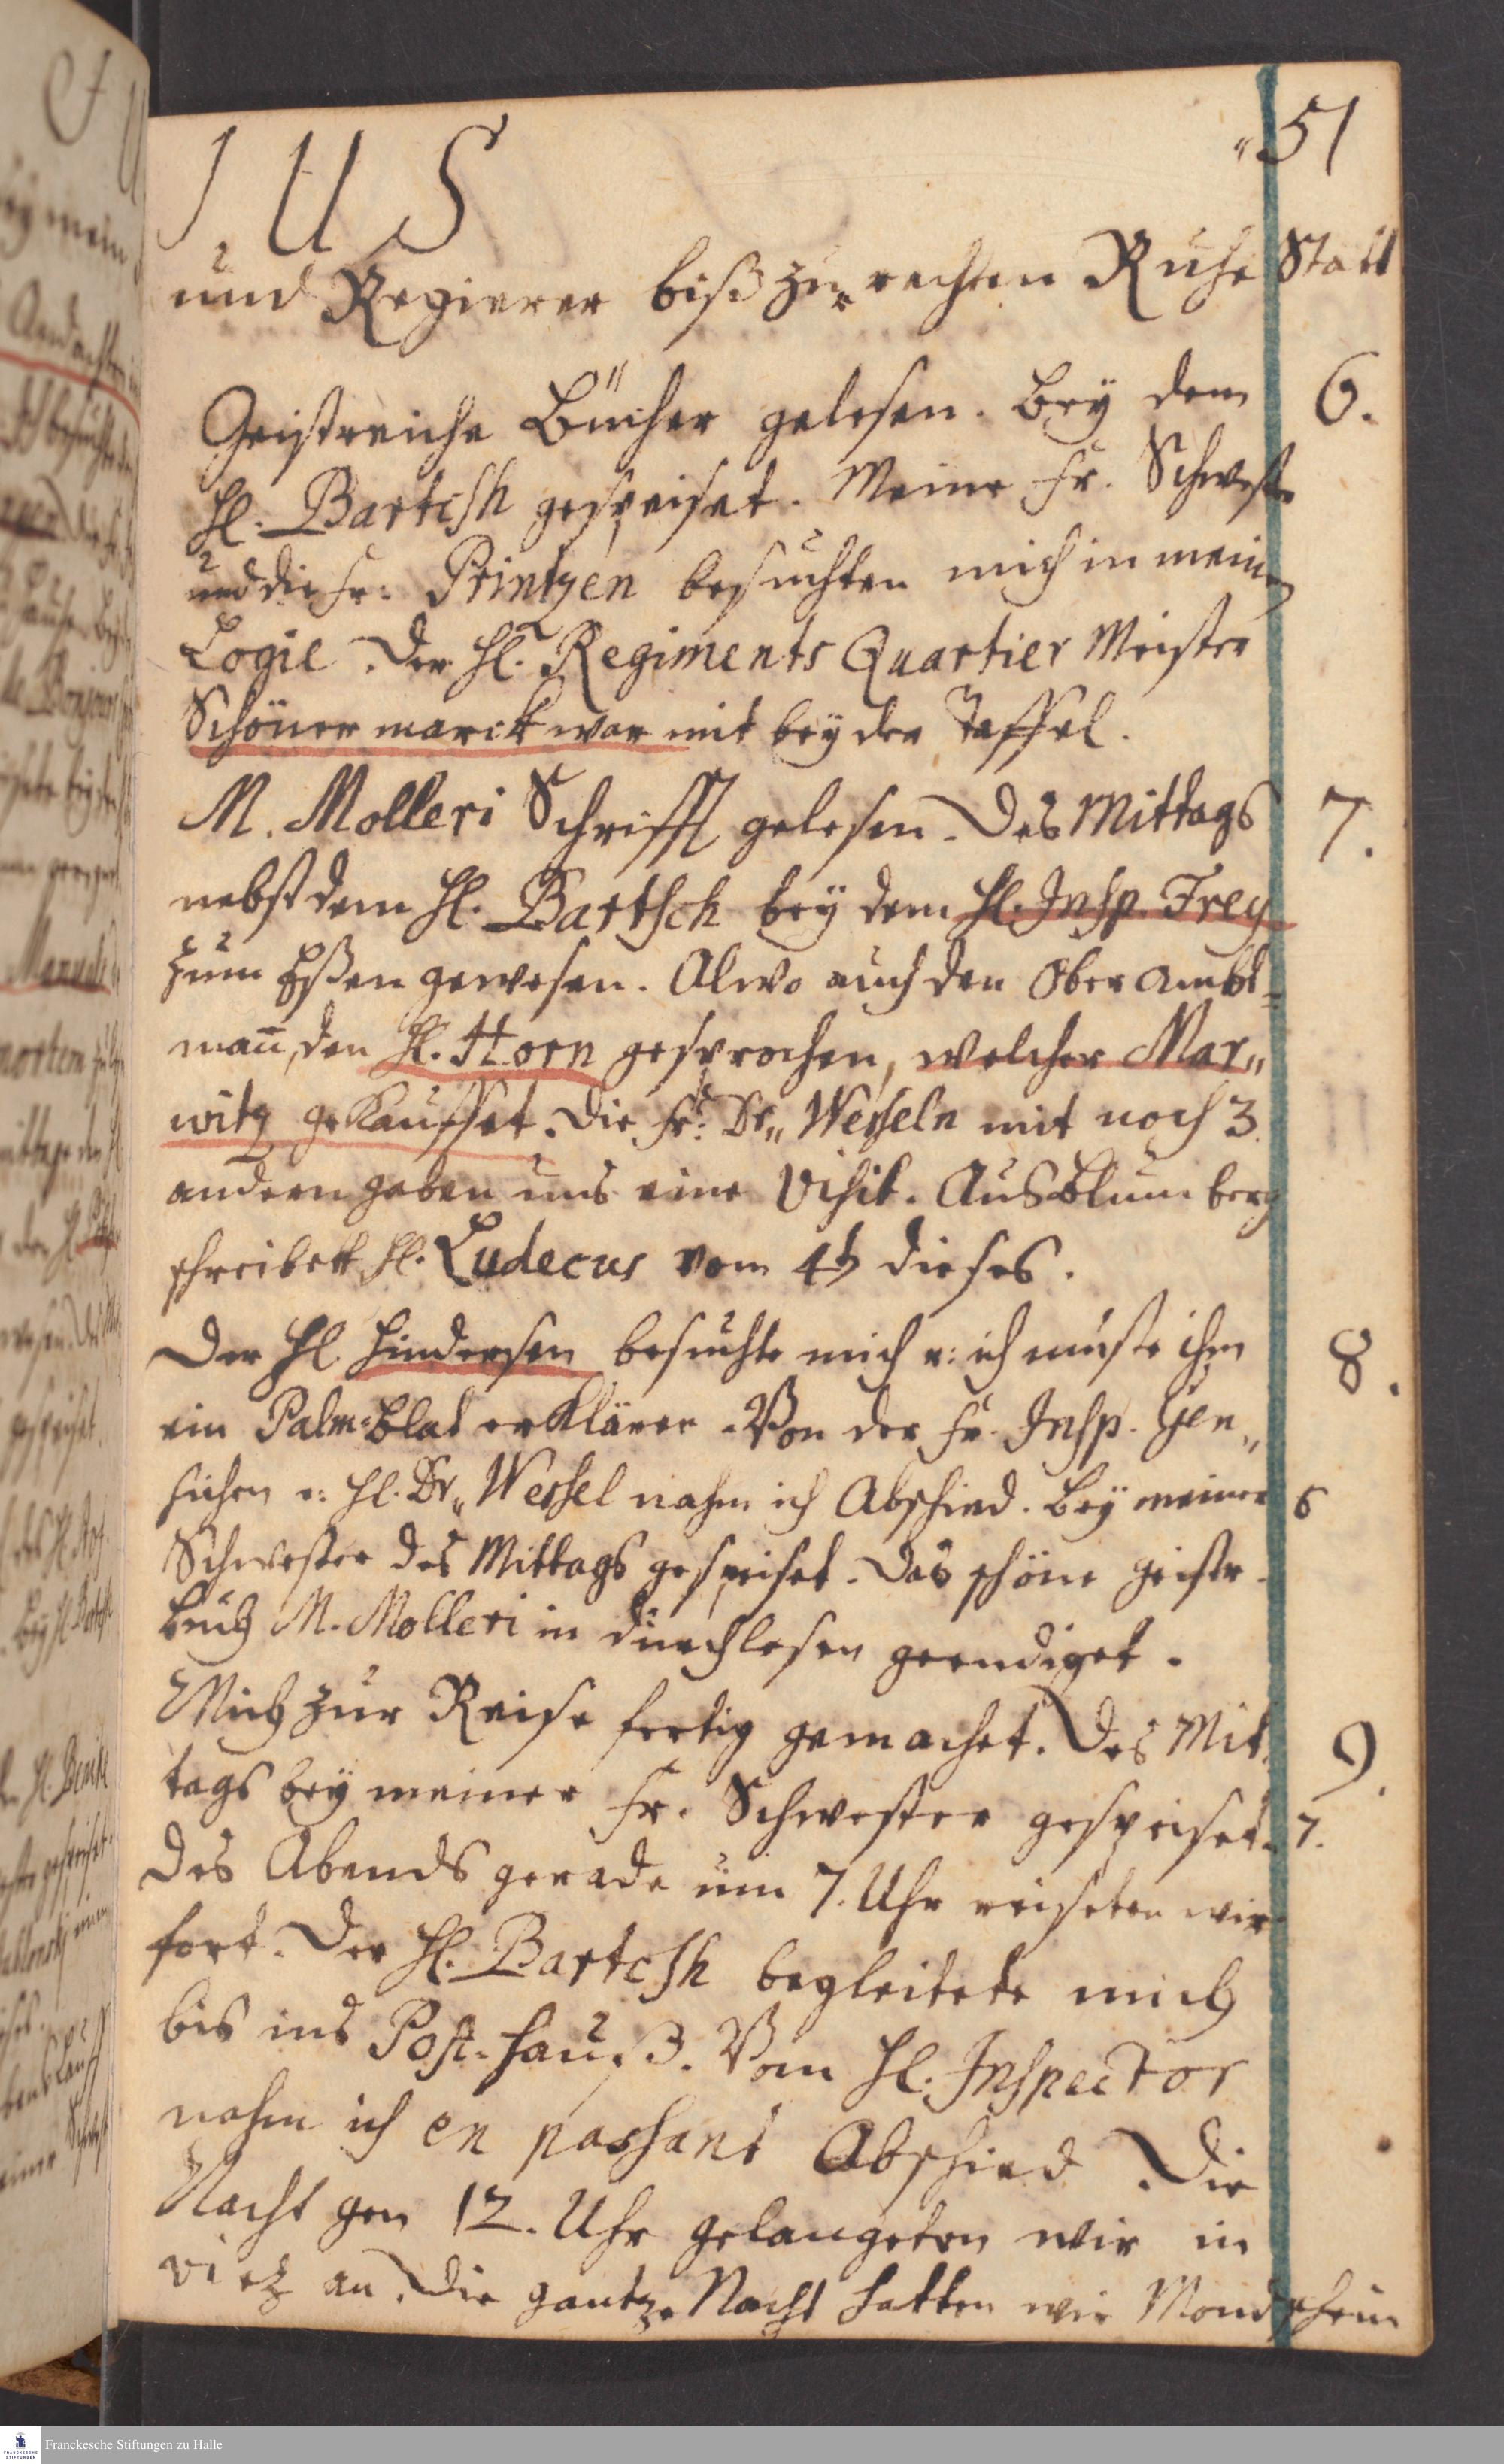 IUS
51
und Regierer biß zur rechten Ruhe Statt
Geistreiche Bücher gelesen. Bey dem 6.
H. Bartcsh gespeiset. Meine Fr. Schwester
und die Fr: Printzen besuchten mich in meinem
Logie. Der H. Regiments Quartier Meister
Schönermarck war mit bey der Taffel.
M. Molleri Schrifft gelesen. Des Mittags 7.
nebst dem H. Bartsch bey dem H. Insp. Frey
zum Eßen gewesen. Alwo auch den Ober Ambt-
man̄, den H. Horn gesprochen, welcher Mar„
witz gekauffet. Die Fr: Dr„ Wesseln mit noch 3
andern gaben uns eine Visit. Aus Blumberg
schreibet H. Ludecus vom 4t dieses.
Der H. Hindersen besuchte mich u: ich muste ihm 8.
ein Palm-Blat erklären. Von der Fr. Insp. Gen„
sichen u: H. Dr„ Wessel nahm ich Abschied. Bey meiner 6
Schwester des Mittags gespeiset. Das schöne geistr.
Buch M. Molleri in durchlesen geendiget.
Mich zur Reise fertig gemachet. Des Mit- 9.
tags bey meiner Fr. Schwester gespeiset. 7.
Des Abends gerade um 7. Uhr reiseten wir
fort. Der H. Bartcsh begleitete mich
bis ins Post-Hauß. Vom H. Inspector
nahm ich en passant Abschied. Die
Nacht gen 12. Uhr gelangeten wir in
Vietz an. Die gantze Nacht hatten wir Mondschein
Franckesche Stiftungen zu Halle